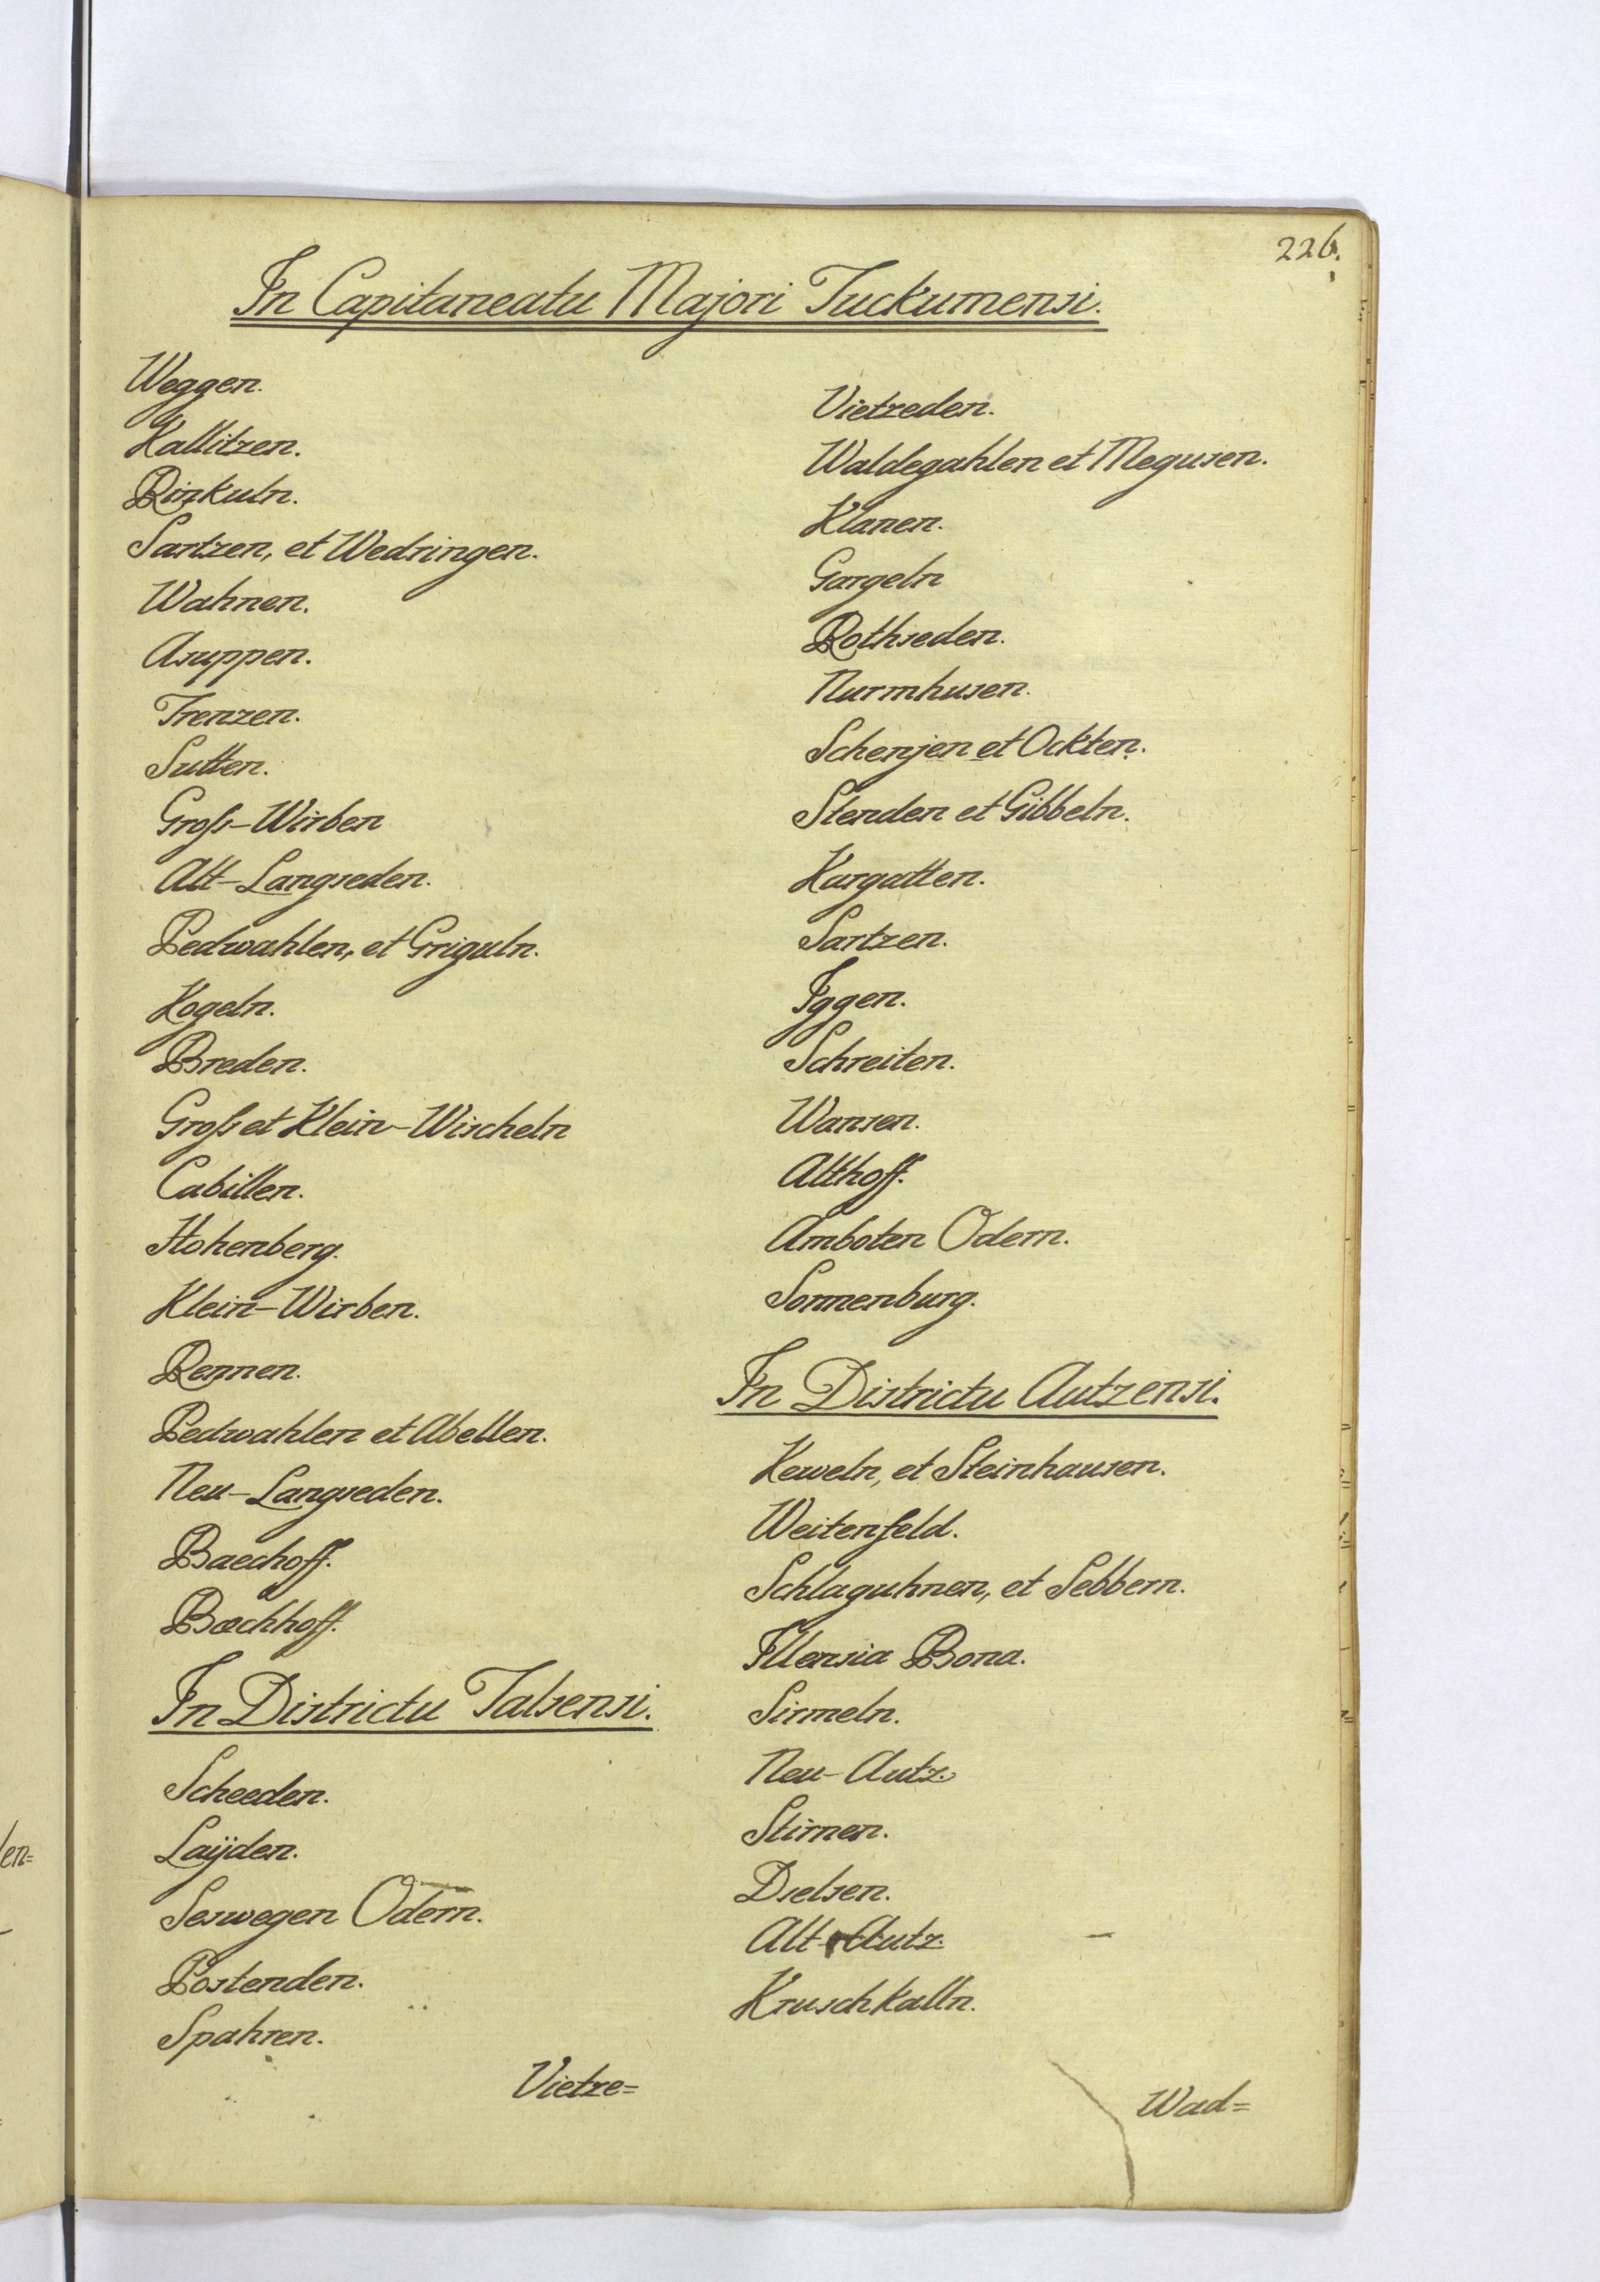 226.
In Capitaneatu Majori Tuckumensi.
Weggen.
Kallitzen.
Rinkuln.
Sartzen, et Wedringen.
Wahnen.
Asuppen.
Trenzen.
Sutten.
Groſs-Wirben
Alt-Langseden.
Pedwahlen, et Griguln.
Kogeln.
Breden.
Groſs et Klein-Wischeln
Cabillen.
Hohenberg.
Klein-Wirben.
Rennen.
Pedwahlen et Abellen.
Neu-Langseden.
Baechoff.
Bæchhoff.
In Districtu Talsensi.
Scheeden.
Laÿden.
Seswegen Odern.
Postenden.
Spahren.
Vietze=
Vietzeden.
Waldegahlen et Megusen.
Klanen.
Gargeln
Rothseden.
Nurmhusen.
Schenjen et Ockten.
Stenden et Gibbeln.
Kargatten.
Sartzen.
Iggen.
Schreiten.
Wansen.
Althoff.
Amboten Odern.
Sonnenburg.
In Districtu Autzensi.
Keweln, et Steinhausen.
Weitenfeld.
Schlaguhnen, et Sebbern.
Illensia Bona.
Sirmeln.
Neu-Autz.
Stirnen.
Dselsen.
Alt-Autz.
Kruschkalln.
Wad=
len=